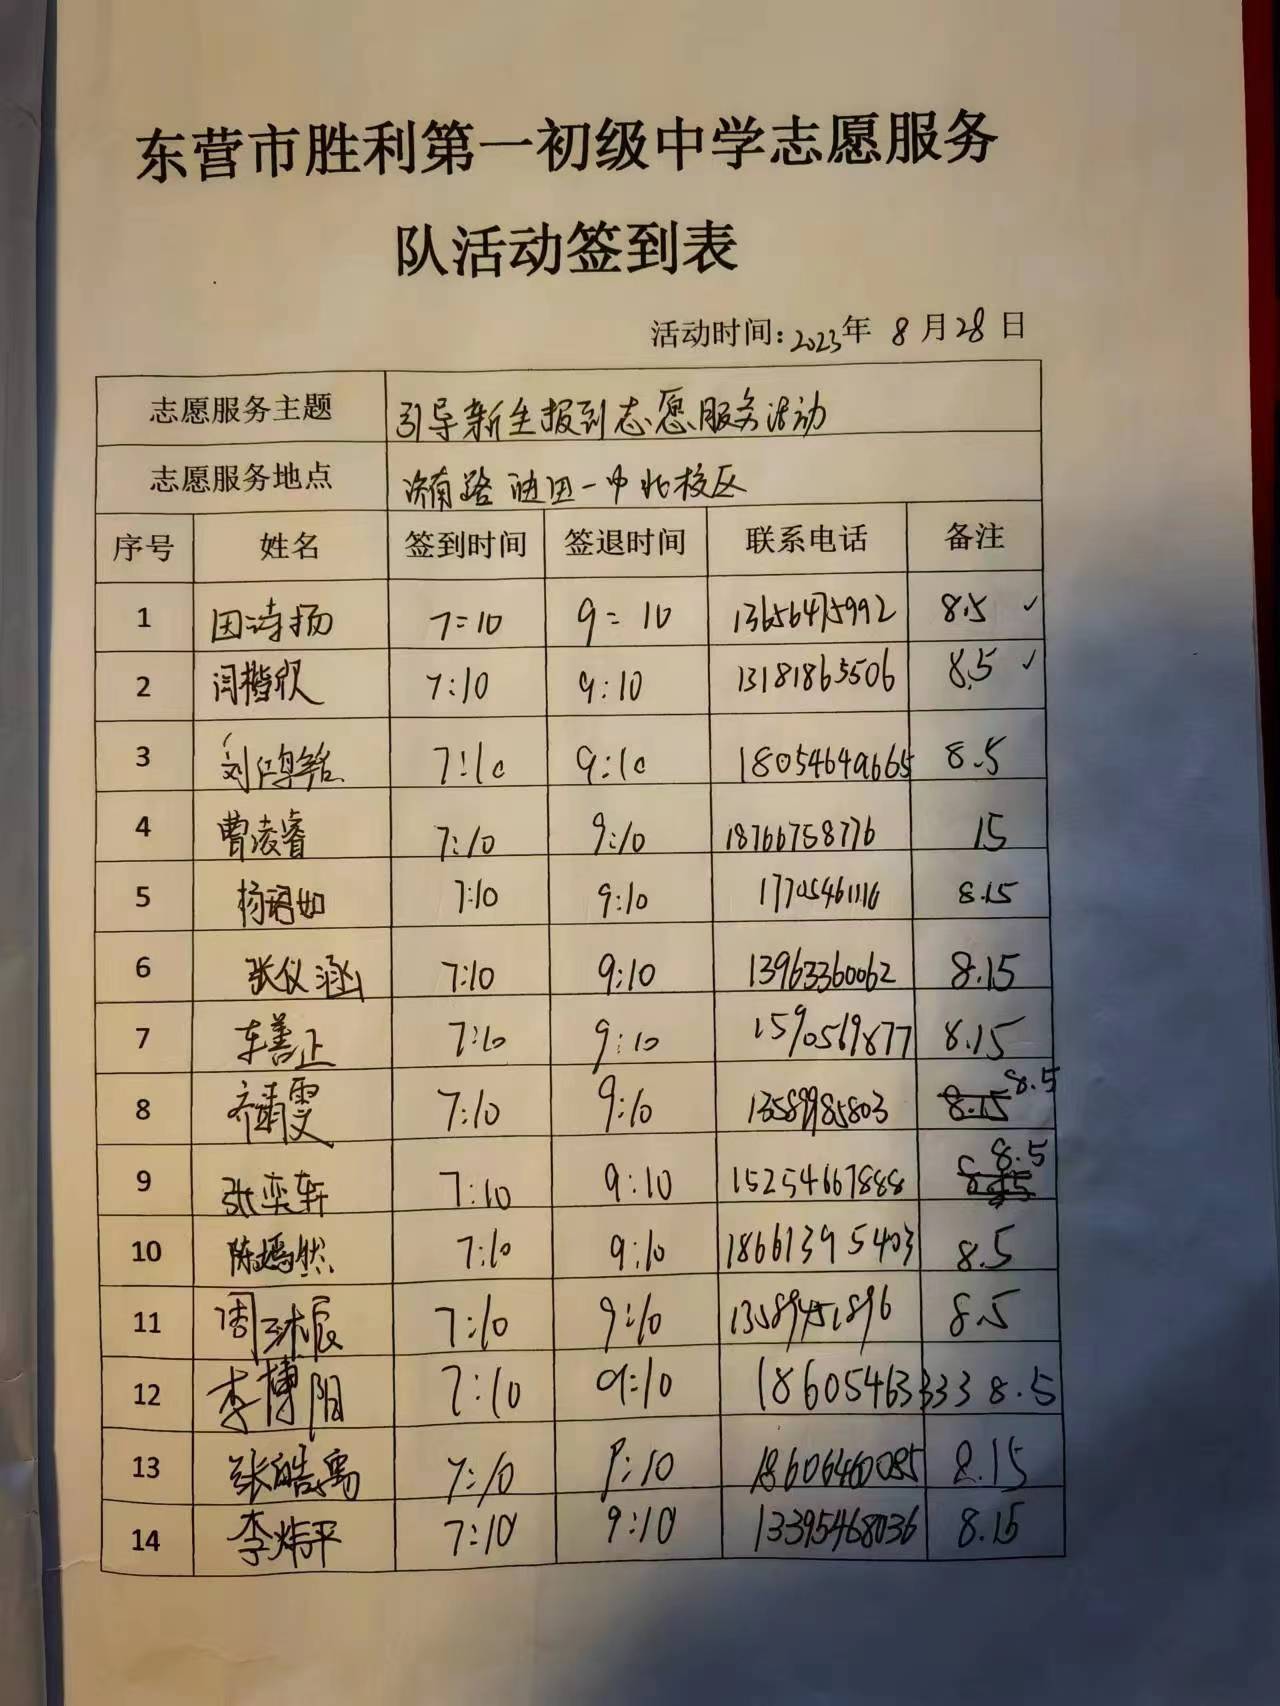 东营市胜利第一初级中学志愿服务
队活动签到表
活动时间:2023年 8月28日
志愿服务主题 引导新生报到志愿服务活动
志愿服务地点 济南路 胜利一中北校区
序号 姓名 签到时间 签退时间 联系电话 备注
1 田诗扬 7:10 9:10 13656475992 8.5 ✓
2 闫楷欣 7:10 9:10 13181863506 8.5 ✓
3 刘鸿铭 7:10 9:10 18054649665 8.5
4 曹凌睿 7:10 9:10 18766758776 15
5 杨珺如 7:10 9:10 17705461116 8.15
6 张仪涵 7:10 9:10 13963360062 8.15
7 车善正 7:10 9:10 1590569877 8.15
8 齐靖雯 7:10 9:10 13589985803 8.15 8.5
9 张奕轩 7:10 9:10 15254667888 8.5
10 陈嫣然 7:10 9:10 18661395403 8.5
11 周沐宸 7:10 9:10 13589451896 8.5
12 李博阳 7:10 9:10 18605463333 8.5
13 张皓禹 7:10 9:10 18606460085 8.15
14 李炜平 7:10 9:10 13395468036 8.15